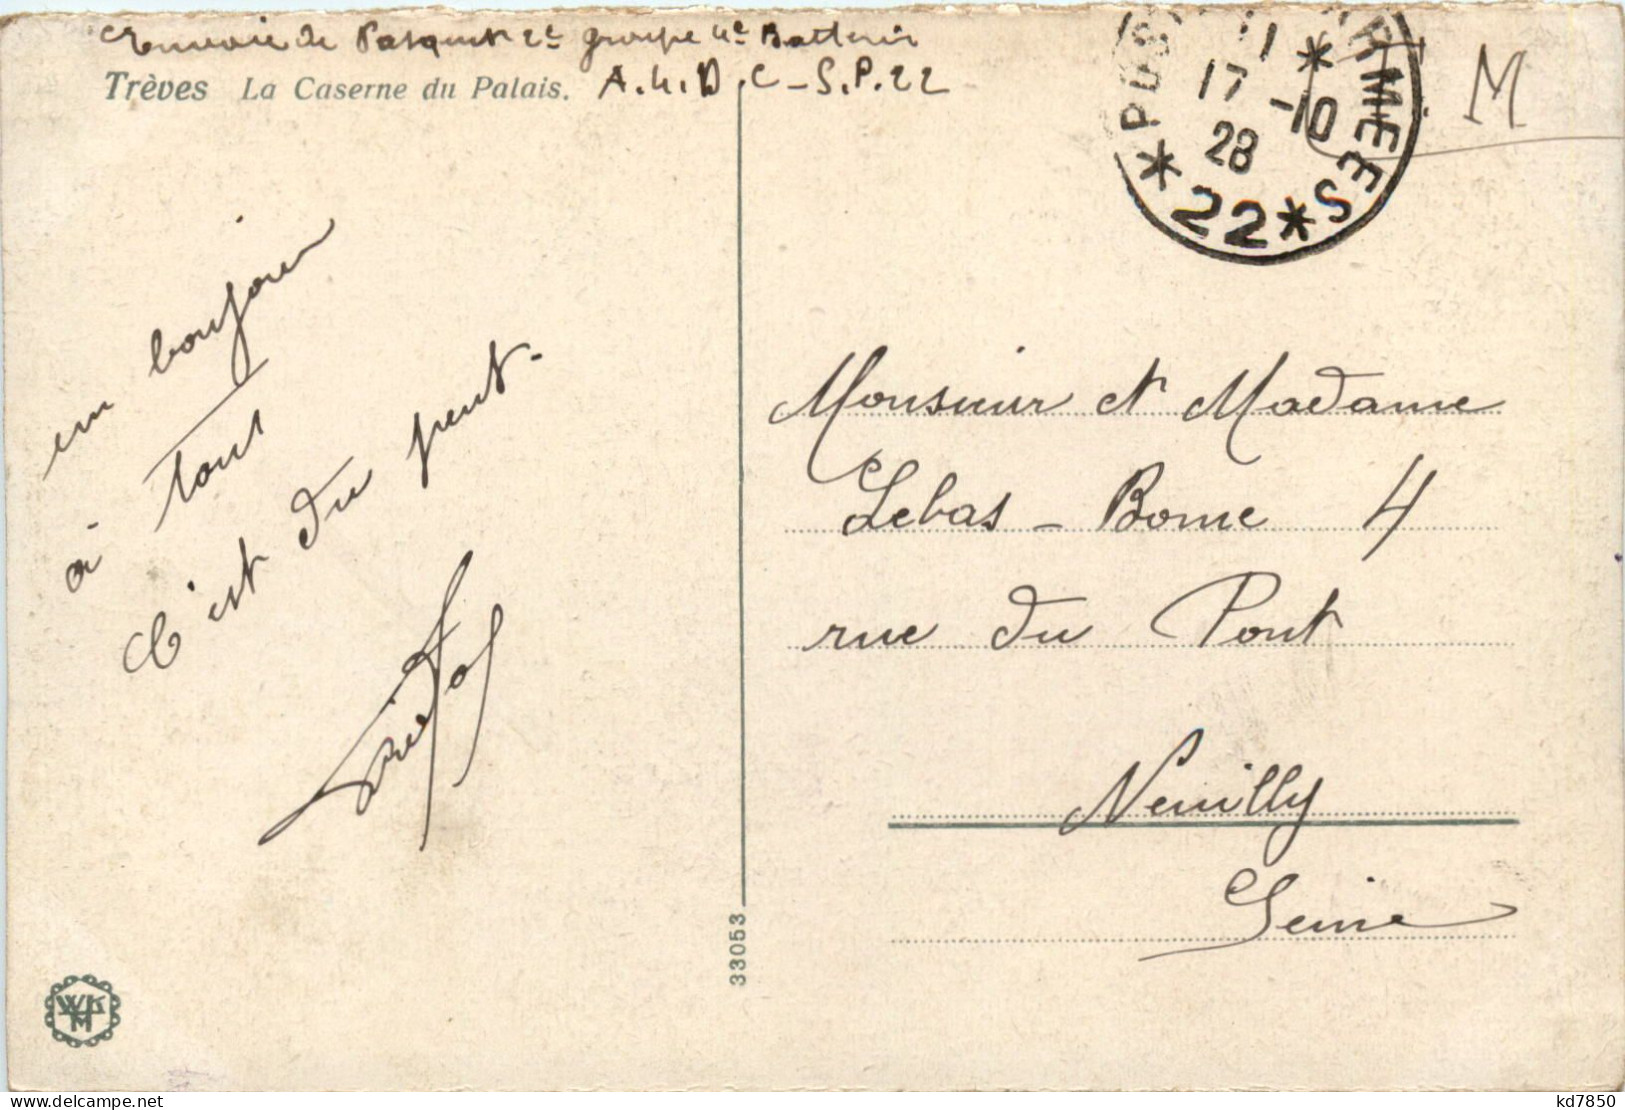 Envoie de Pasquet 2e groupe 4e Batterie
Trèves La Caserne du Palais. A.4.D.C-S.P.22
POSTE ARMÉES
*
11
17-10
28
*22*
M
un bonjour
à tous
C'est du peut.
Monsieur et Madame
Lebas-Borne 4
rue du Pont
Neuilly
Seine
33053
kd7850